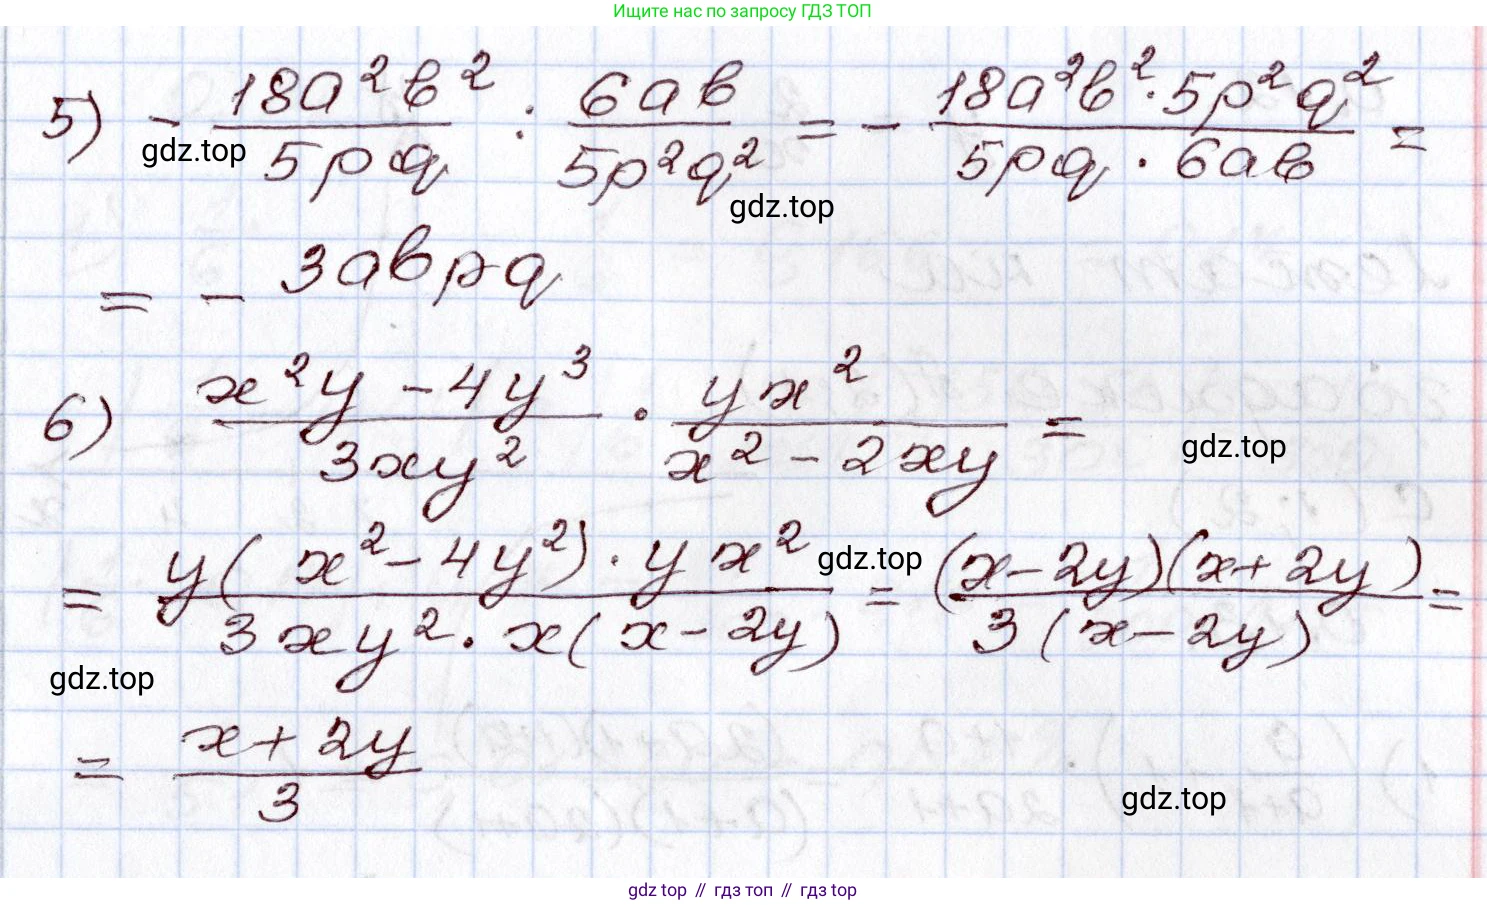 Ищите нас по запросу ГДЗ ТОП
5) - 18a²b² / 5pq : 6ab / 5p²q² = - 18a²b² · 5p²q² / 5pq · 6ab =
gdz.top
gdz.top
= - 3abpq
6) x²y - 4y³ / 3xy² · yx² / x² - 2xy =
gdz.top
= y(x² - 4y²) · yx² / 3xy² · x(x - 2y) = (x - 2y)(x + 2y) / 3(x - 2y) =
gdz.top
gdz.top
= x + 2y / 3
gdz.top
gdz top // гдз топ // gdz top